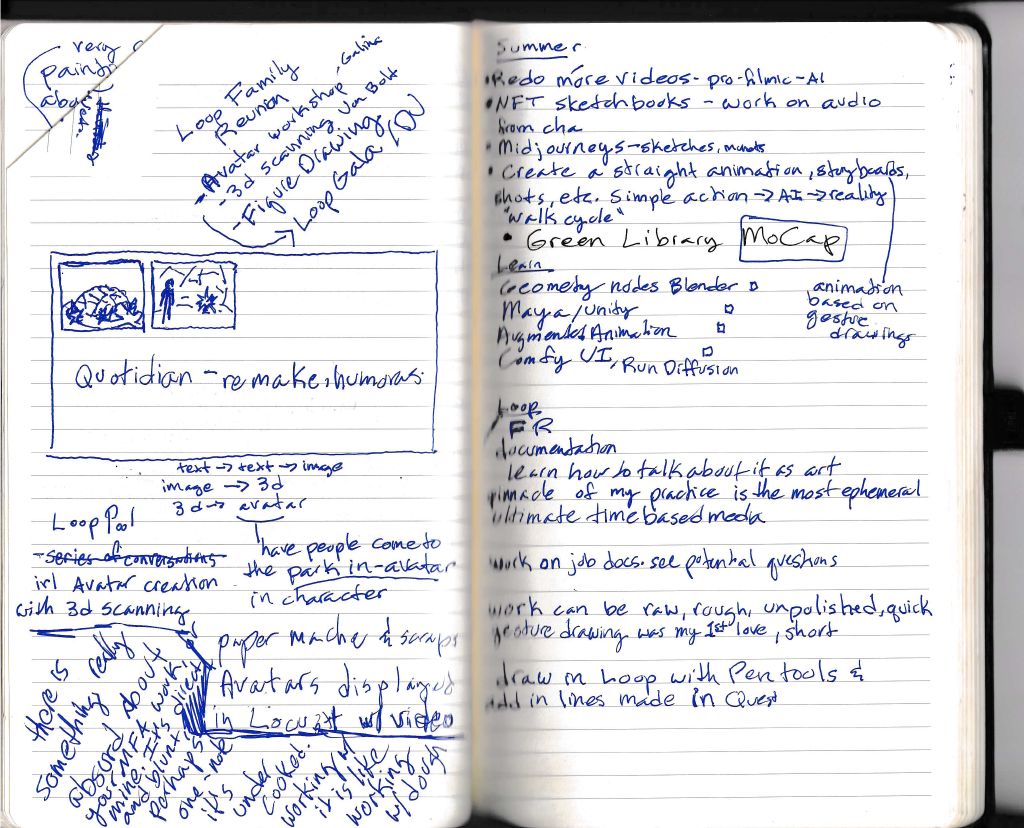 very
paint
abo
Loop Family
Reunion
- Avatar workshop, Galina
- 3d scanning, Von Bolt
- Figure Drawing
Loop Gala / DV
Quotidian - remake, humorous
text → text → image
image → 3d
3d → avatar
Loop Pool
- series of conversations
irl Avatar creation
with 3d scanning
have people come to
the park in-avatar
in character
paper mache & scraps
Avatars displayed
in Locust w/ video
there is
something really
absurd about
your MFA work, or
mine. It's direct
and blunt
perhaps
one-note
it's
under
cooked.
working w/
it is like
working
w/ dough
Summer
• Redo more videos - pro-filmic-AI
• NFT sketchbooks - work on audio
from cha
• Midjourneys - sketches,
• Create a straight animation, storyboards,
shots, etc. Simple action → AI → reality
"walk cycle"
• Green Library MoCap
Learn
Geomety nodes Blender
Maya/Unity
Augmented Animation
Comfy UI, Run Diffusion
animation
based on
gesture
drawings
Loop
FR
documentation
learn how to talk about it as art
pinnacle of my practice is the most ephemeral
ultimate time based media
work on job docs. see potential questions
work can be raw, rough, unpolished, quick
gesture drawing was my 1st love, short
draw in Loop with Pen tools &
add in lines made in Quest